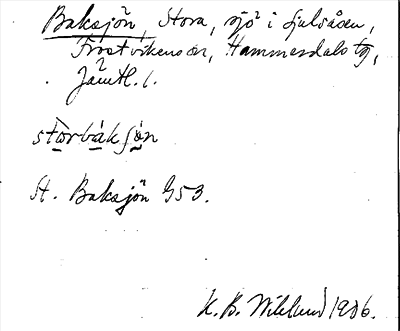 Baksjön, Stora, sjö i Ljulsåsen,
Frostvikens sn, Hammerdals tg,
Jämtl. l.
stòrbáksjòn
St. Baksjön G53.
K. B. Wiklund 1906.